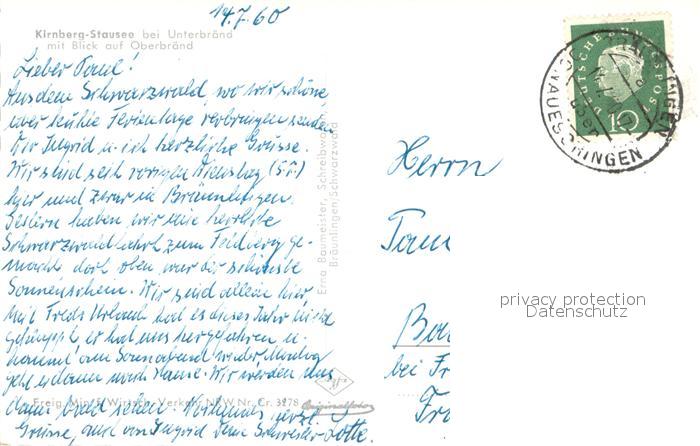 14.7.60
Kirnberg-Stausee bei Unterbränd
mit Blick auf Oberbränd
Lieber Paul!
Aus dem Schwarzwald, wo wir schöne
aber kühle Ferientage verbringen senden
Dir Ingrid u. ich herzliche Grüsse.
Wir sind seit vorigen Dienstag (5.7.)
hier und zwar in Bräunlingen.
Gestern haben wir eine herrliche
Schwarzwaldfahrt zum Feldberg ge-
macht, dort oben war der schönste
Sonnenschein. Wir sind allein hier,
mit Freds Urlaub hat es dieses Jahr nicht
geklappt, er hat uns hergefahren u.
kommt am Sonnabend wieder. Montag
geht es dann nach Hause. Wir werden uns
dann bald sehen.
Grüsse, auch von Ingrid Deine Schwester Lotte.
Freig. Min. f. Wirtsch. u. Verkehr NRW Nr. Cr. 3278
Agfa
Originalfoto
Erna Baumeister, Schreibwaren
Bräunlingen/Schwarzwald
DEUTSCHE BUNDESPOST
10
DONAUESCHINGEN
Herrn
bei
privacy protection
Datenschutz